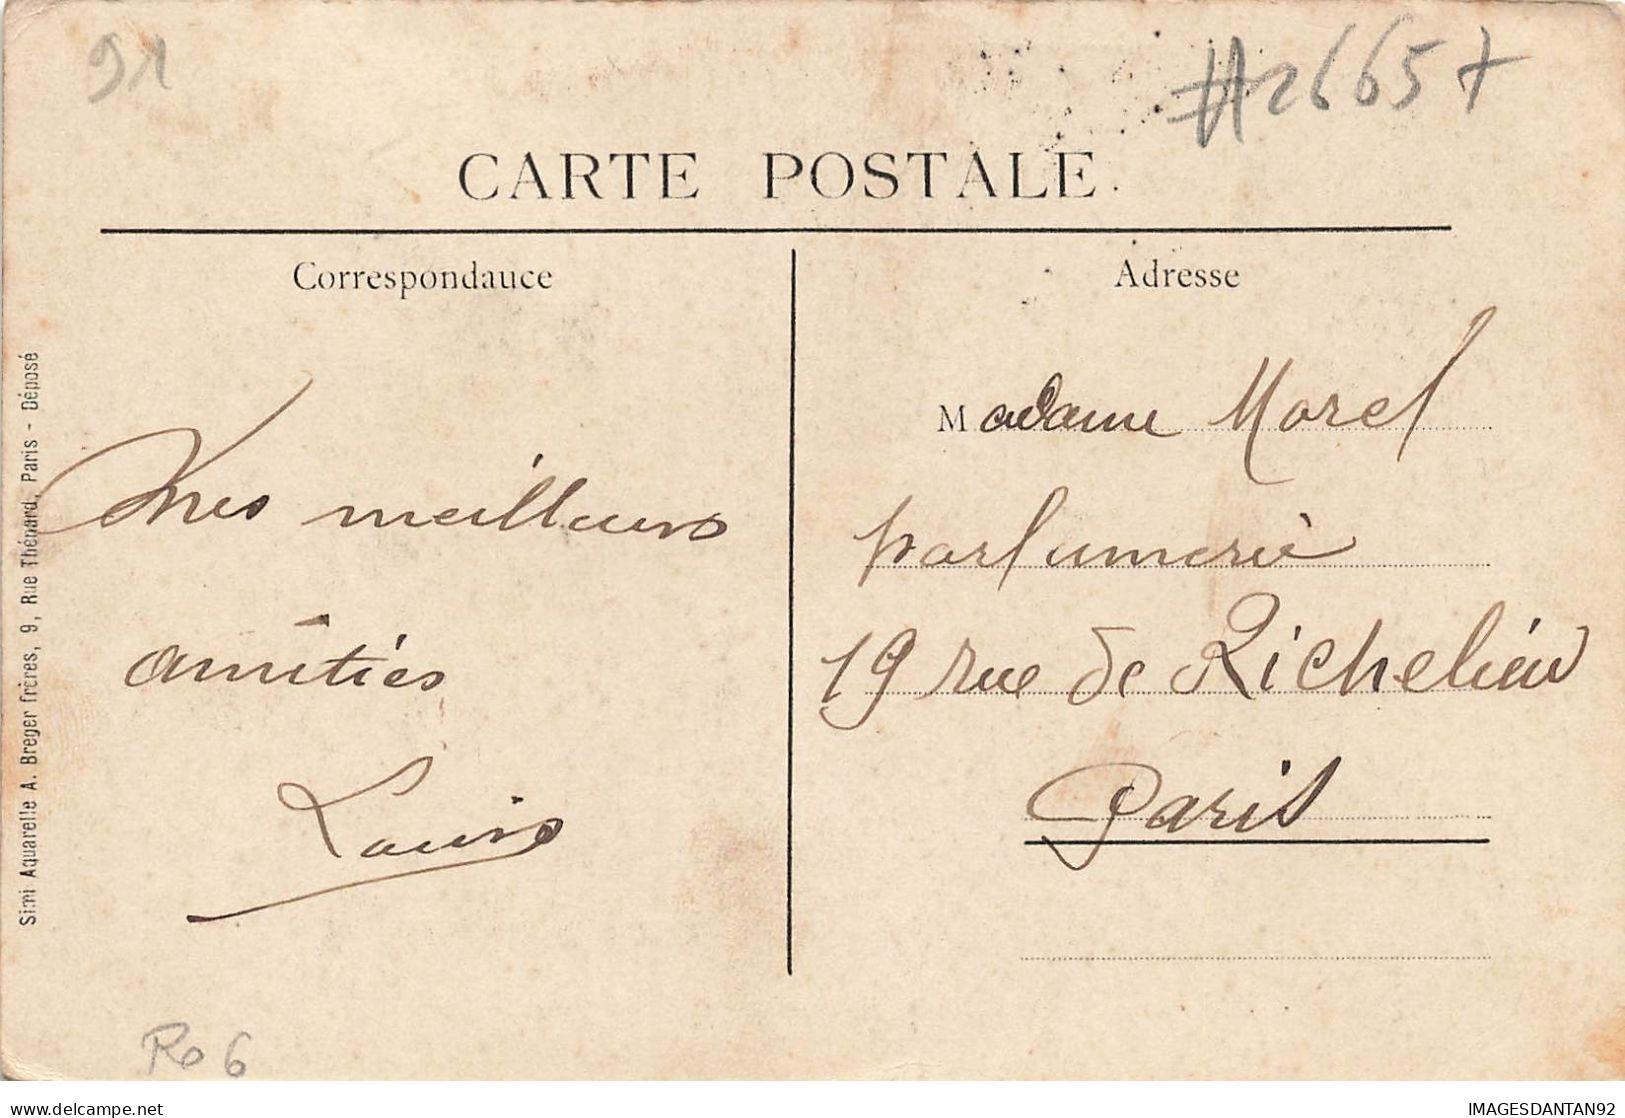 91
#26657
CARTE POSTALE
Correspondance
Adresse
Mes meilleurs
amitiés
Louis
Madame Morel
parfumerie
19 rue de Richelieu
Paris
Simi Aquarelle A. Breger frères, 9, Rue Thénard, Paris - Déposé
Ro 6
delcampe.net
IMAGESDANTAN92